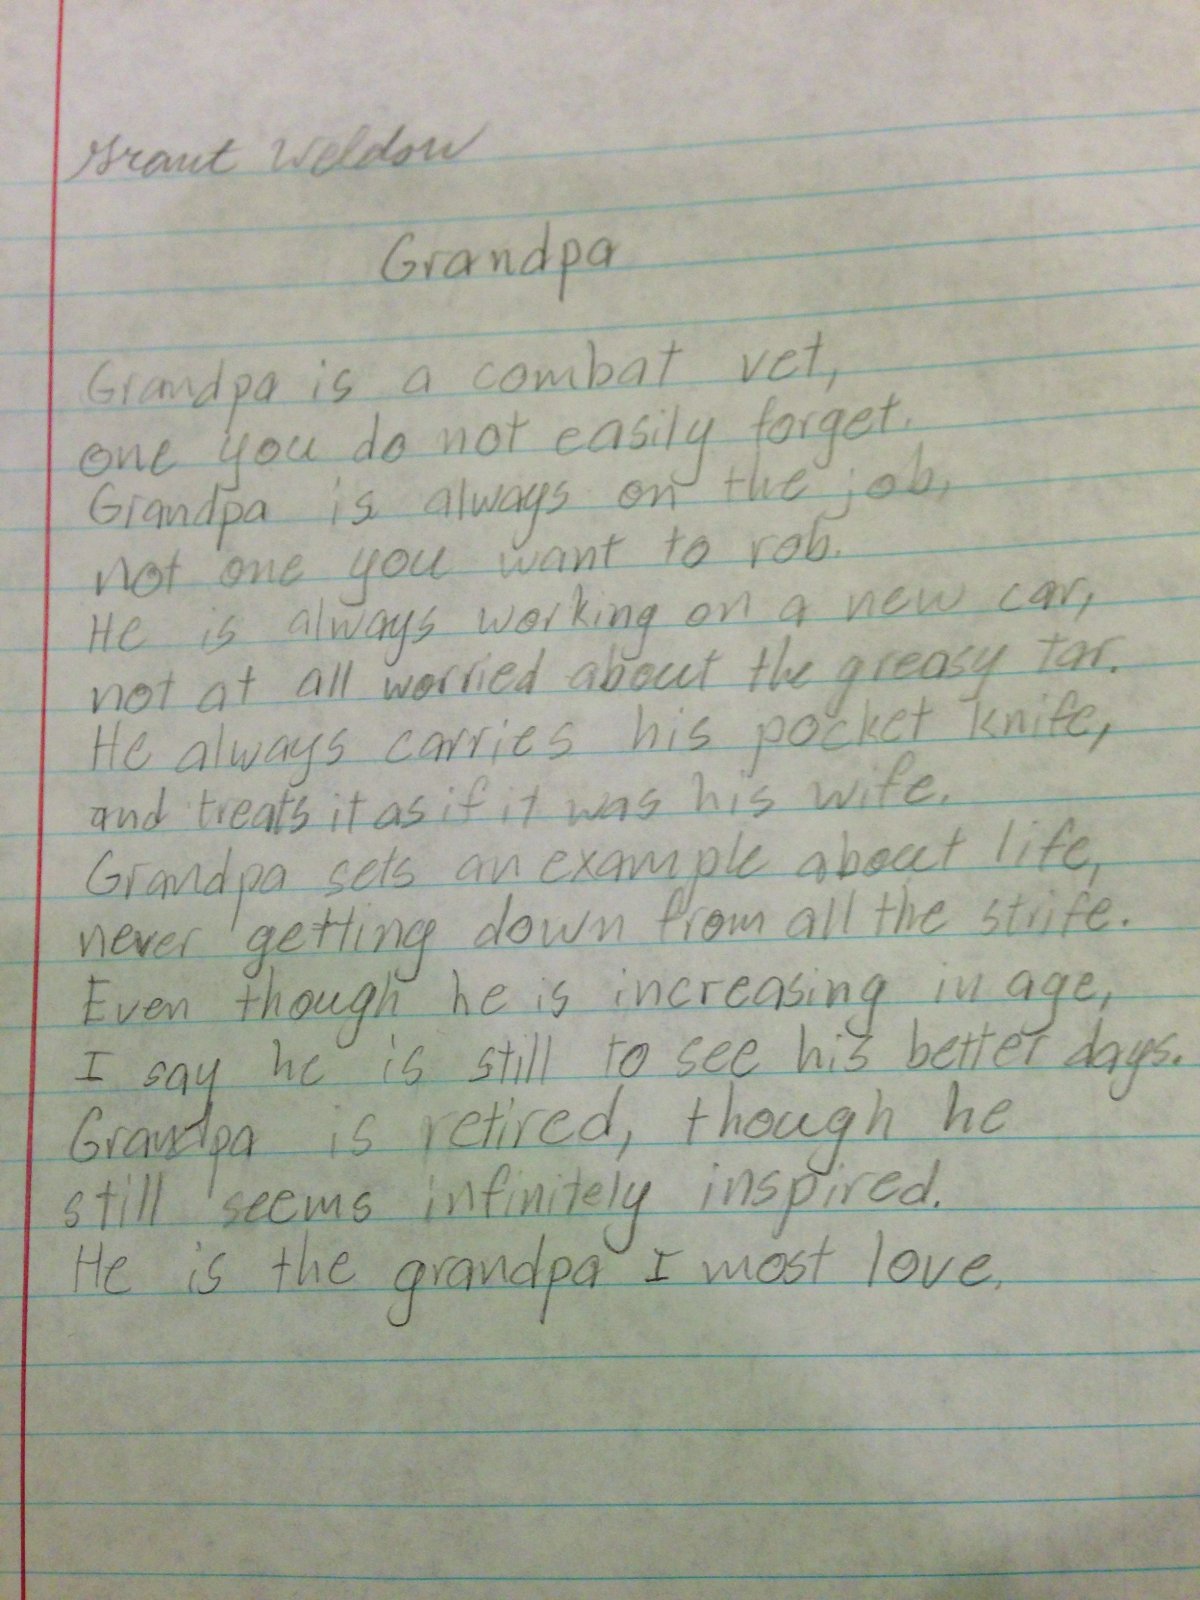 Grant Weldon
Grandpa
Grandpa is a combat vet,
one you do not easily forget.
Grandpa is always on the job,
not one you want to rob.
He is always working on a new car,
not at all worried about the greasy tar.
He always carries his pocket knife,
and treats it as if it was his wife.
Grandpa sets an example about life,
never getting down from all the strife.
Even though he is increasing in age,
I say he is still to see his better days.
Grandpa is retired, though he
still seems infinitely inspired.
He is the grandpa I most love.